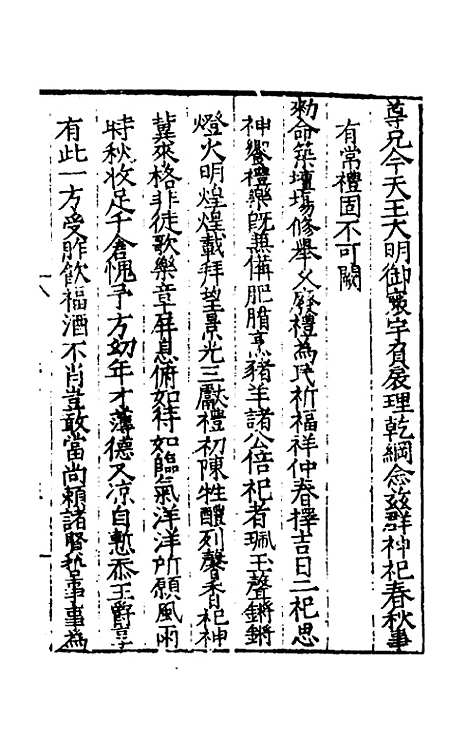 尊兄今天王大明御寰宇負扆理乾綱念茲群神祀春秋事
有常禮固不可闕
勑命築壇塲修舉久廢禮為民祈福祥仲春擇吉日二祀思
神饗禮樂既兼備肥腯烹豬羊諸公倍祀者珮玉聲鏘鏘
燈火明煌煌載拜望景光三獻禮初陳牲醴列馨香祀神
冀來格非徒歌樂章屏息俯如待如臨氣洋洋所願風雨
時秋收足千倉愧予方幼年才薄德又凉自慙忝王爵享
有此一方受胙飲福酒不肖豈敢當尚賴諸賢事事為